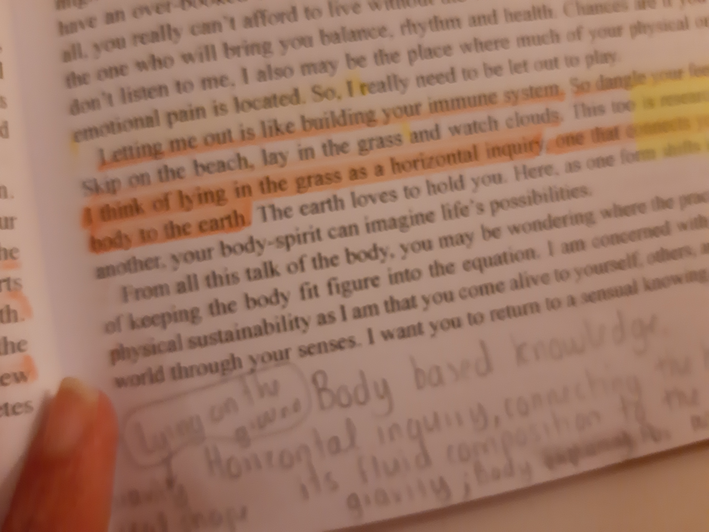 have an over-booked
all, you really can't afford to live without
the one who will bring you balance, rhythm and health. Chances are if you
don't listen to me, I also may be the place where much of your physical or
emotional pain is located. So, I really need to be let out to play.
Letting me out is like building your immune system. So dangle your feet
Skip on the beach, lay in the grass and watch clouds. This too is research
I think of lying in the grass as a horizontal inquiry, one that connects
body to the earth. The earth loves to hold you. Here, as one form shifts
another, your body-spirit can imagine life's possibilities.
From all this talk of the body, you may be wondering where the
of keeping the body fit figure into the equation. I am concerned with
physical sustainability as I am that you come alive to yourself, others,
world through your senses. I want you to return to a sensual knowing
ur
he
rts
th.
the
ew
etes
Lying on the
Body based knowledge.
Horizontal inquiry, connecting the
its fluid composition to the
gravity, Body